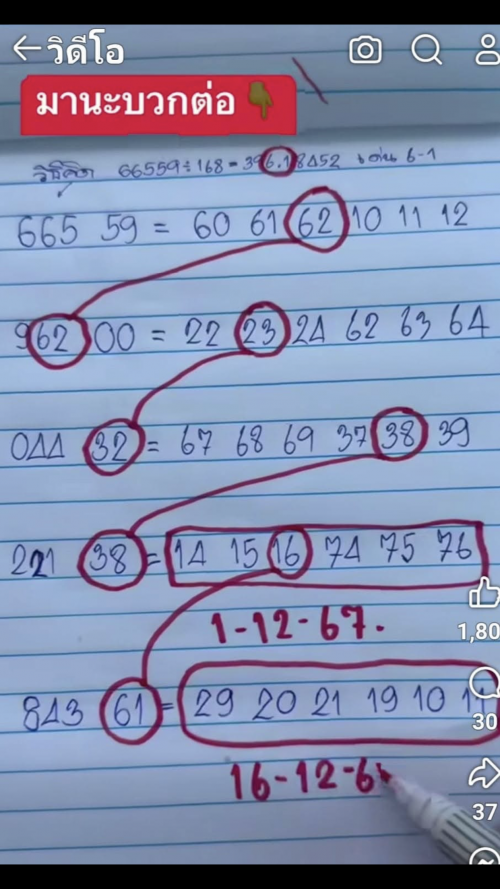 วิดีโอ
มานะบวกต่อ👇
วิธีคิด 66559÷168=396.18452 เด่น 6-1
665 59 = 60 61 62 10 11 12
962 00 = 22 23 24 62 63 64
044 32 = 67 68 69 37 38 39
221 38 = 14 15 16 74 75 76
1-12-67.
1,80
843 61 = 29 20 21 19 10 11
30
16-12-6
37